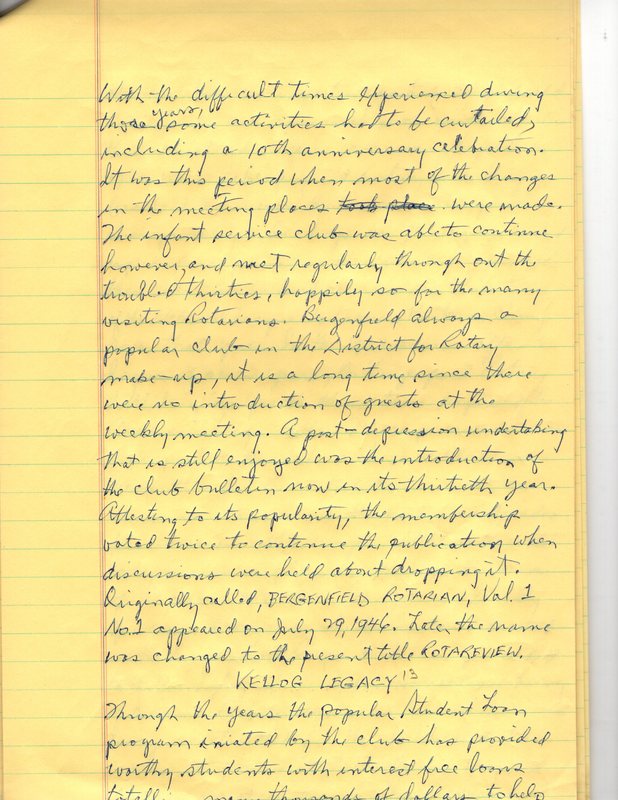 With the difficult times experienced during
those years, some activities had to be curtailed,
including a 10th anniversary celebration.
It was this period when most of the changes
in the meeting places took place were made.
The infant service club was able to continue
however, and meet regularly through out the
troubled thirties, happily so for the many
visiting Rotarians. Bergenfield always a
popular club in the District for Rotary
make-up, it is a long time since there
were no introduction of guests at the
weekly meeting. A post-depression undertaking
that is still enjoyed was the introduction of
the club bulletin now in its thirtieth year.
Attesting to its popularity, the membership
voted twice to continue the publication when
discussions were held about dropping it.
Originally called, BERGENFIELD ROTARIAN, Vol. 1
No. 1 appeared on July 29, 1946. Later the name
was changed to the present title ROTAREVIEW.
KELLOG LEGACY 13
Through the years the popular Student Loan
program iniated by the club has provided
worthy students with interest free loans
many thousands of dollars to help